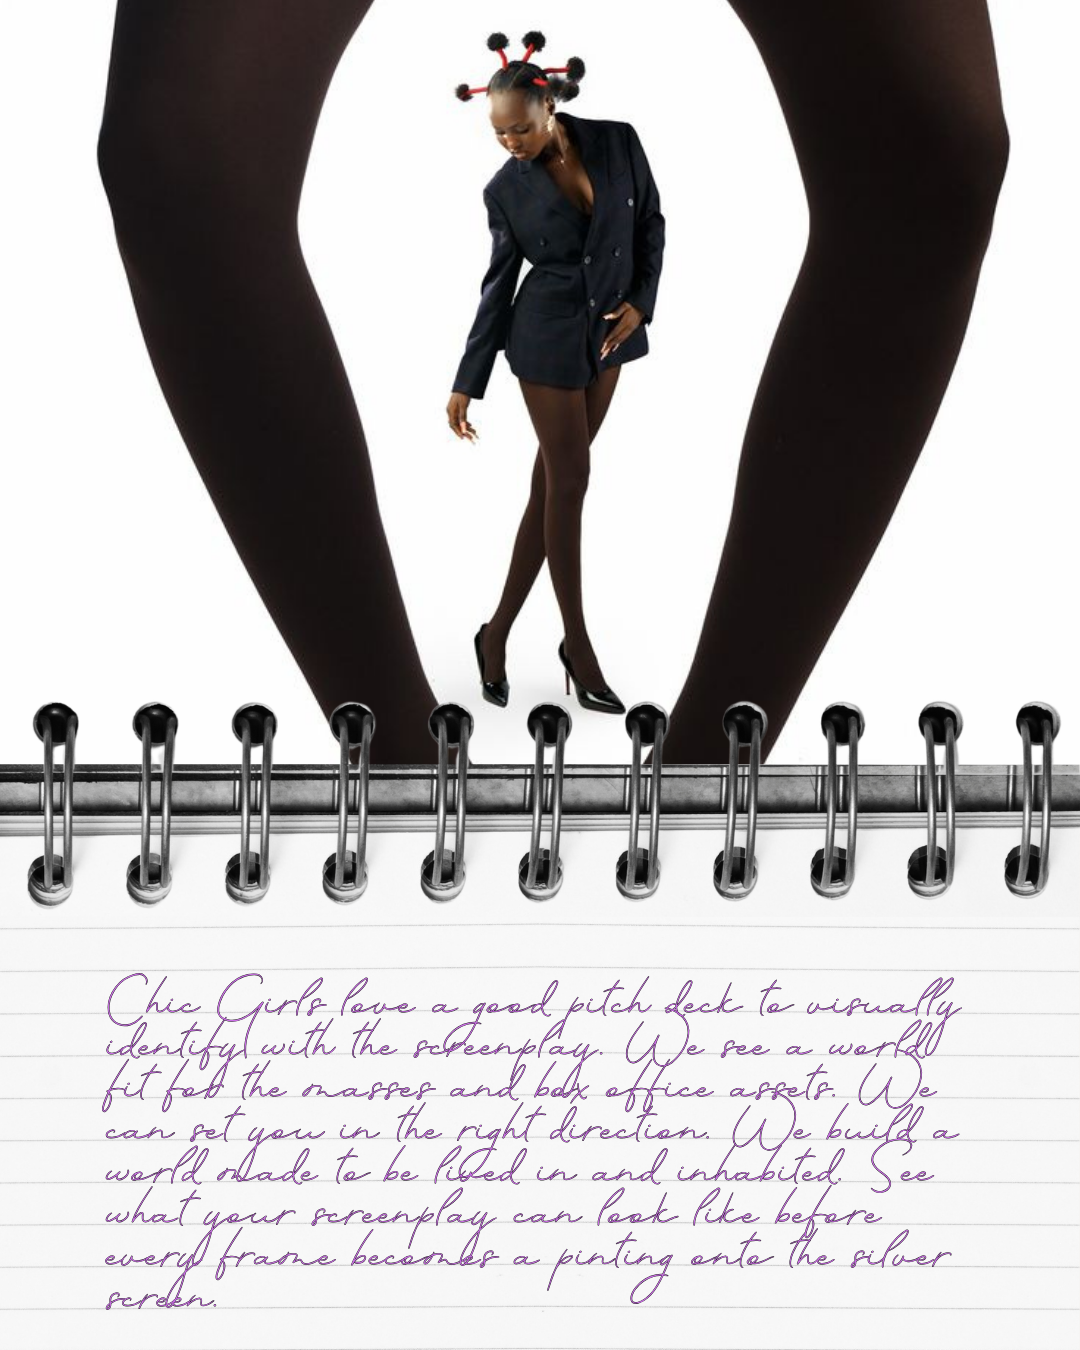 Chic Girls love a good pitch deck to visually
identify with the screenplay. We see a world
fit for the masses and box office assets. We
can set you in the right direction. We build a
world made to be lived in and inhabited. See
what your screenplay can look like before
every frame becomes a pinting onto the silver
screen.